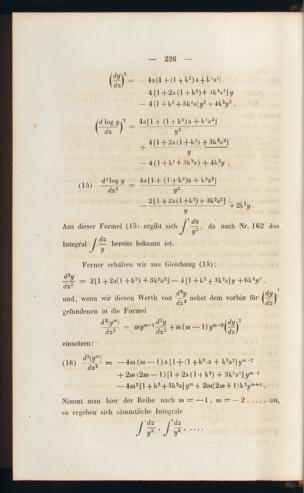 — 226 —
(dy/dz)² = — 4a[1+(1+k²)a+k²a²]
4[1+2a(1+k²)+3k²a²]y
— 4[1+k²+3k²a]y²+4k²y³.
(d log y/dz)² = 4a[1+(1+k²)a+k²a²]/y²
+ 4[1+2a(1+k²)+3k²a²]/y
— 4(1+k²+3k²a)+4k²y,
(15) d²log y/dz² = 4a[1+(1+k²)a+k²a²]/y²
— 2[1+2a(1+k²)+3k²a²]/y +2k²y.
Aus dieser Formel (15) ergibt sich ∫dz/y², da nach Nr. 162 das
Integral ∫dz/y bereits bekannt ist.
Ferner erhalten wir aus Gleichung (15):
d²y/dz² = 2[1+2a(1+k²)+3k²a²]—4[1+k²+3k²a]y+6k²y²,
und, wenn wir diesen Werth von d²y/dz² nebst dem vorhin für (dy/dz)²
gefundenen in die Formel
d²(yᵐ)/dz² = myᵐ⁻¹ d²y/dz² + m(m—1)yᵐ⁻²(dy/dz)²
einsetzen:
(16) d²(yᵐ)/dz² = —4m(m—1)a[1+(1+k²)a+k²a²]yᵐ⁻²
+2m(2m—1)[1+2a(1+k²)+3k²a²]yᵐ⁻¹
—4m²[1+k²+3k²a]yᵐ+2m(2m+1)k²yᵐ⁺¹.
Nimmt man hier der Reihe nach m=—1, m=—2 ..... an,
so ergeben sich sämmtliche Integrale
∫dz/y³, ∫dz/y⁴, ....